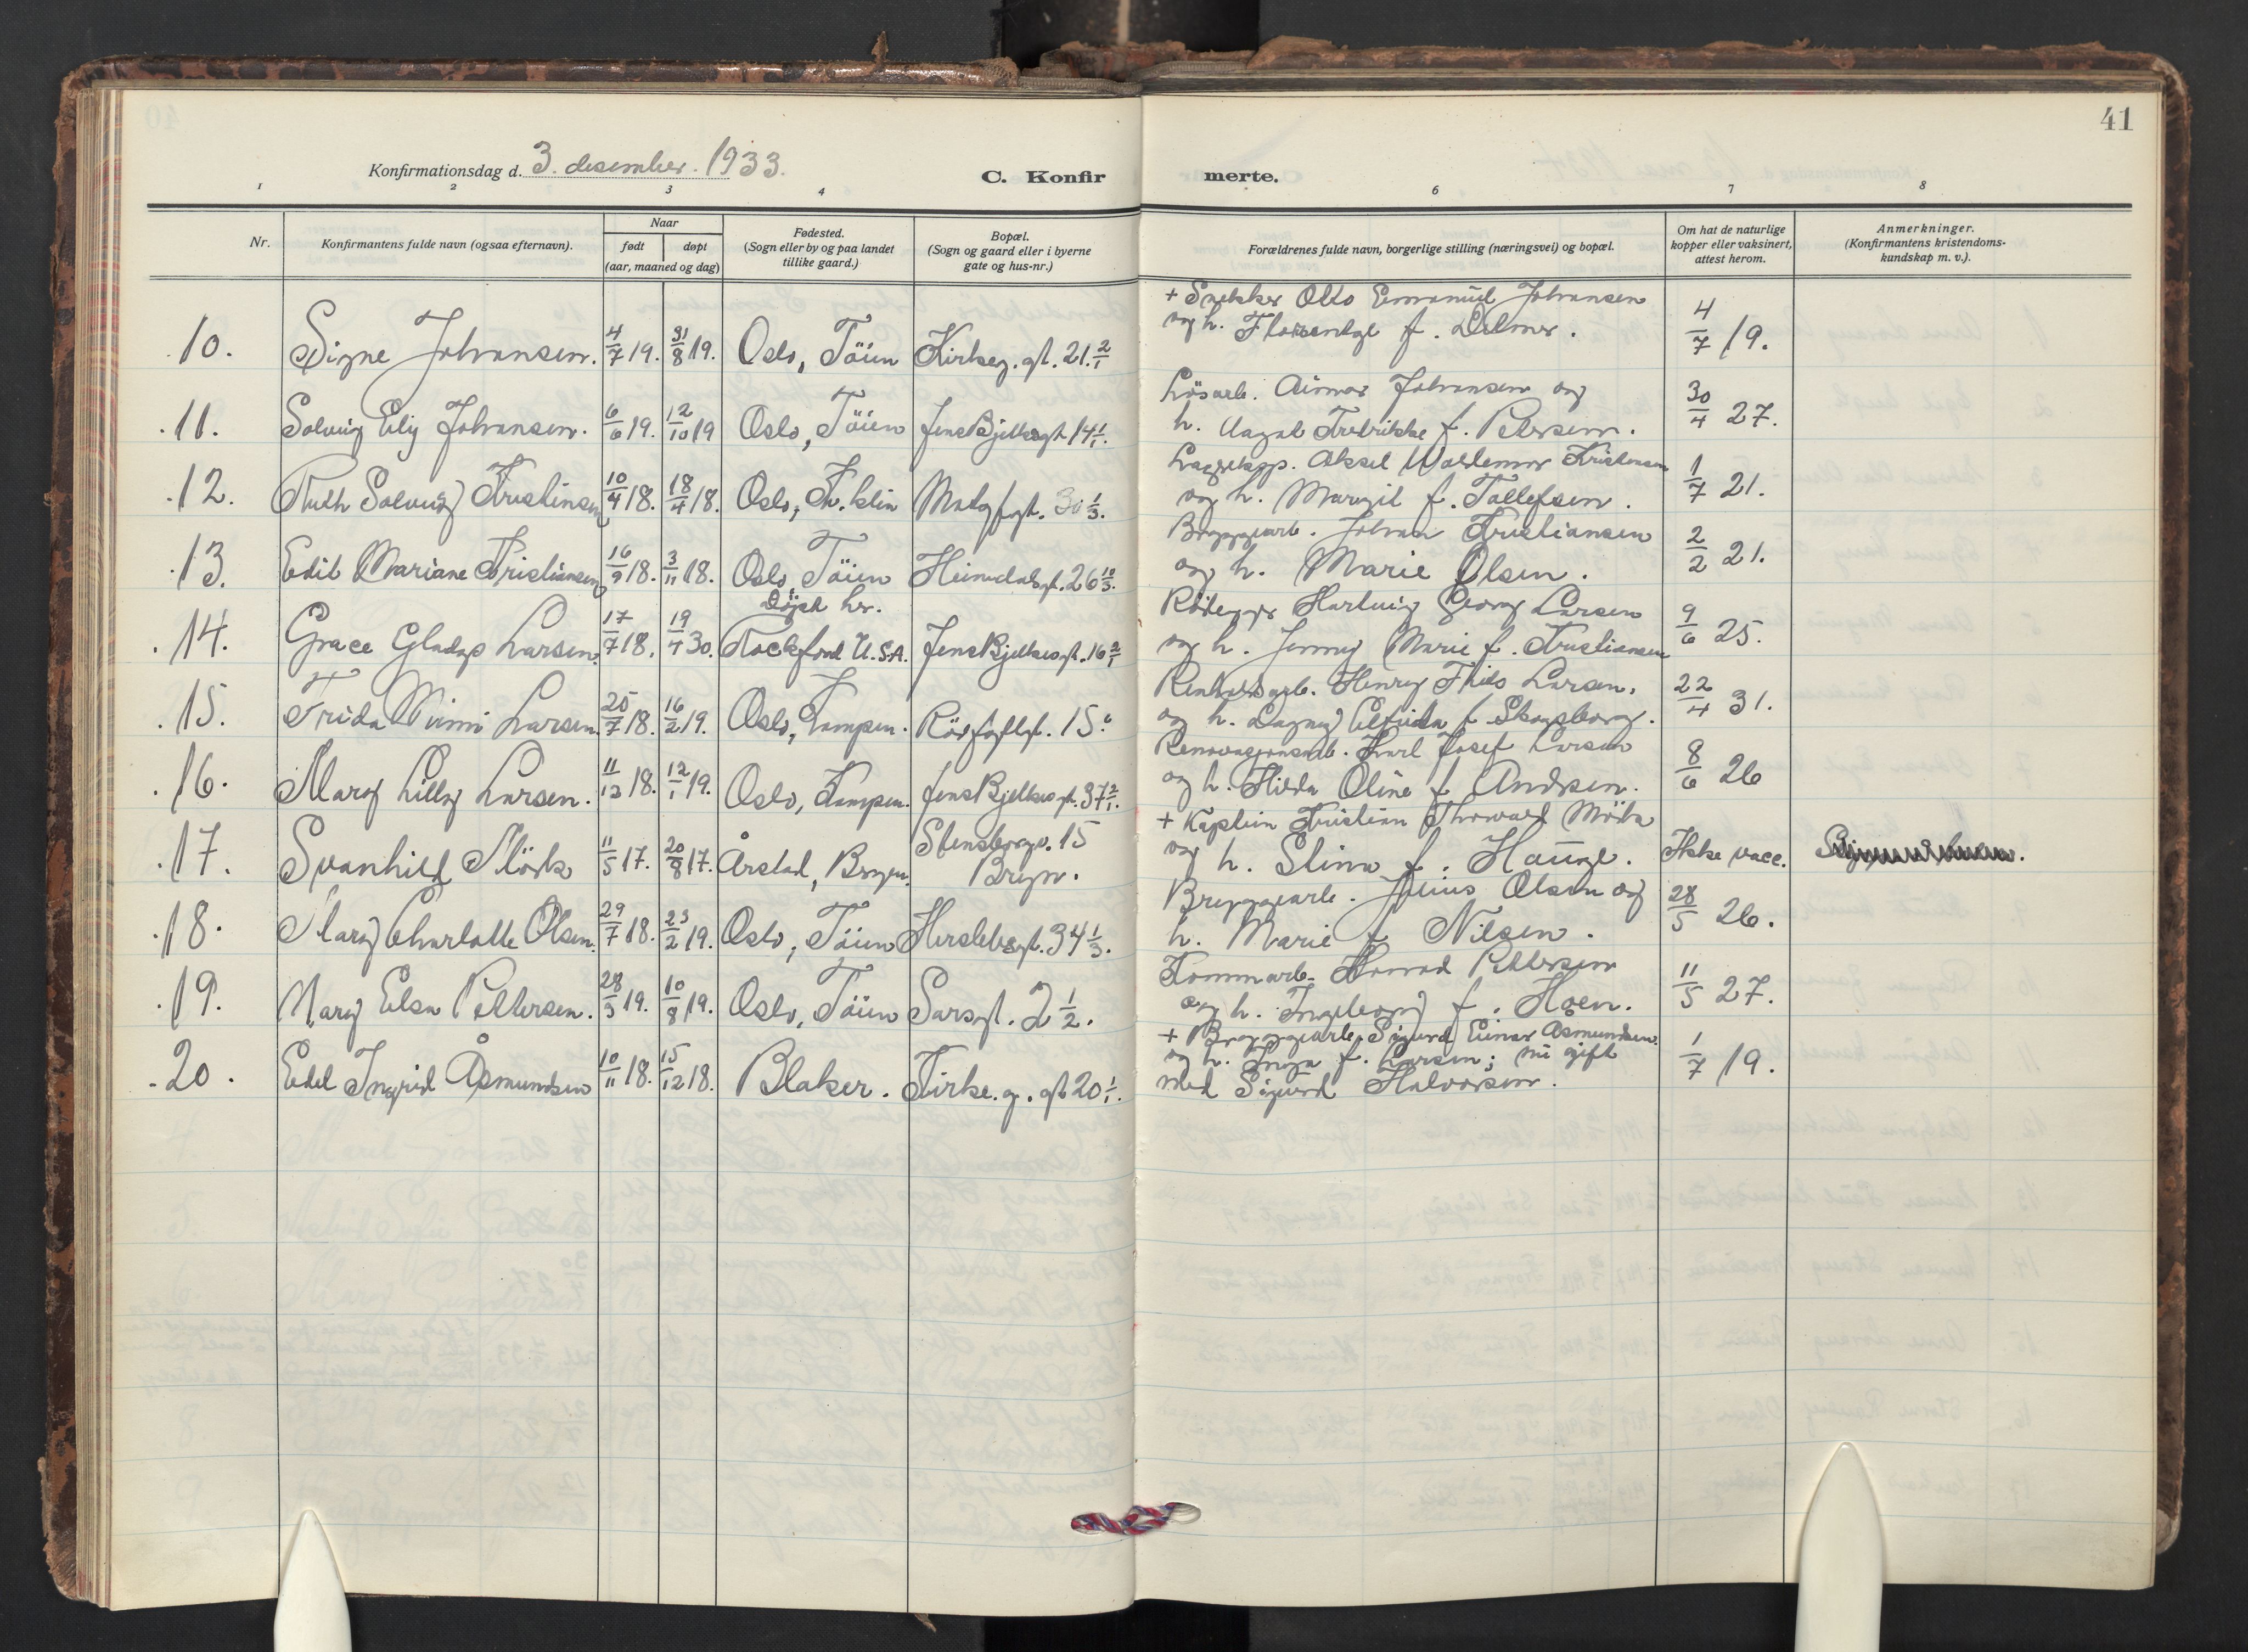 41
Konfirmationsdag d. 3. desember. 1933.
C. Konfir merte.
1 2 3 4 6 7 8
Nr.
Konfirmantens fulde navn (ogsaa efternavn).
Naar
født døpt
(aar, maaned og dag)
Fødested.
(Sogn eller by og paa landet
tillike gaard.)
Bopæl.
(Sogn og gaard eller i byerne
gate og hus-nr.)
Forældrenes fulde navn, borgerlige stilling (næringsvei) og bopæl.
Om hat de naturlige
kopper eller vaksinert,
attest herom.
Anmerkninger.
(Konfirmantens kristendoms-
kundskap m. v.).
+ Snekker Otto Emanuel Johansen
og h. f.
10. Signe Johansen. 4/7 19. 31/8 19. Oslo, Töien Kirkeg. gt. 21. 2/1 4/7 19.
Lösarb. Johansen og
11. Solveig Johansen. 6/6 19. 12/10 19 Oslo, Töien Jens Bjelkesgt. 14 1/1. h. Aagot Fredrikke f. Petersen. 30/4 27.
Aksel Waldemar Kristensen
12. Ruth Solveig Kristensen 10/4 18. 18/4 18. Oslo, 30 1/3. og h. Margit f. Tollefsen. 1/7 21.
Bryggearb. Johan Kristiansen
13. Edit Mariane Kristiansen 16/9 18. 3/11 18. Oslo, Töien Heimdalsgt. 26 10/3. og h. Marie Olsen. 2/2 21.
Döpt her.
Hartvig Georg Larsen
14. Grace Gladys Larsen. 17/7 18. 19/4 30. Rockford U.S.A. Jens Bjelkesgt. 16 2/1 og h. Jenny Marie f. Kristiansen 9/6 25.
Renholdsarb. Henry Larsen.
15. Frida Mimmi Larsen. 25/7 18. 16/2 19. Oslo, Kampen. 15. og h. Dagny Elfrida f. Skogsborg. 22/4 31.
Renovasjonsarb. Karl Josef Larsen
16. Mary Lilly Larsen. 11/12 18. 12/1 19. Oslo, Kampen. Jens Bjelkesgt. 37 2/1. og h. Hilda Oline f. Andersen. 8/6 26
+ Kaptein Kristian Mörk
Stensbergv. 15
17. Svanhild Mörk 11/5 17. 20/8 17. Årstad, Bergen. Bryn. og h. Stina f. Hauge. Ikke vacc.
Bryggearb. Julius Olsen og
18. Mary Charlotte Olsen. 29/7 18. 23/2 19. Oslo, Töien Herslebsgt. 34 1/3. h. Marie f. Nilsen. 28/5 26.
Kommarb. Konrad Pettersen
19. Mary Elsa Pettersen. 28/3 19. 10/8 19. Oslo, Töien Sarsgt. 2 1/2. og h. Ingeborg f. Hoen. 11/5 27.
+ Bryggearb. Sigurd Einar Åsmundsen.
og h. Inga f. Larsen; nu gift
20. Edel Ingrid Åsmundsen 10/11 18. 15/12 18. Blaker. Kirke. g. gt 20 1/1. med Sigurd Halvorsen. 1/7 19.